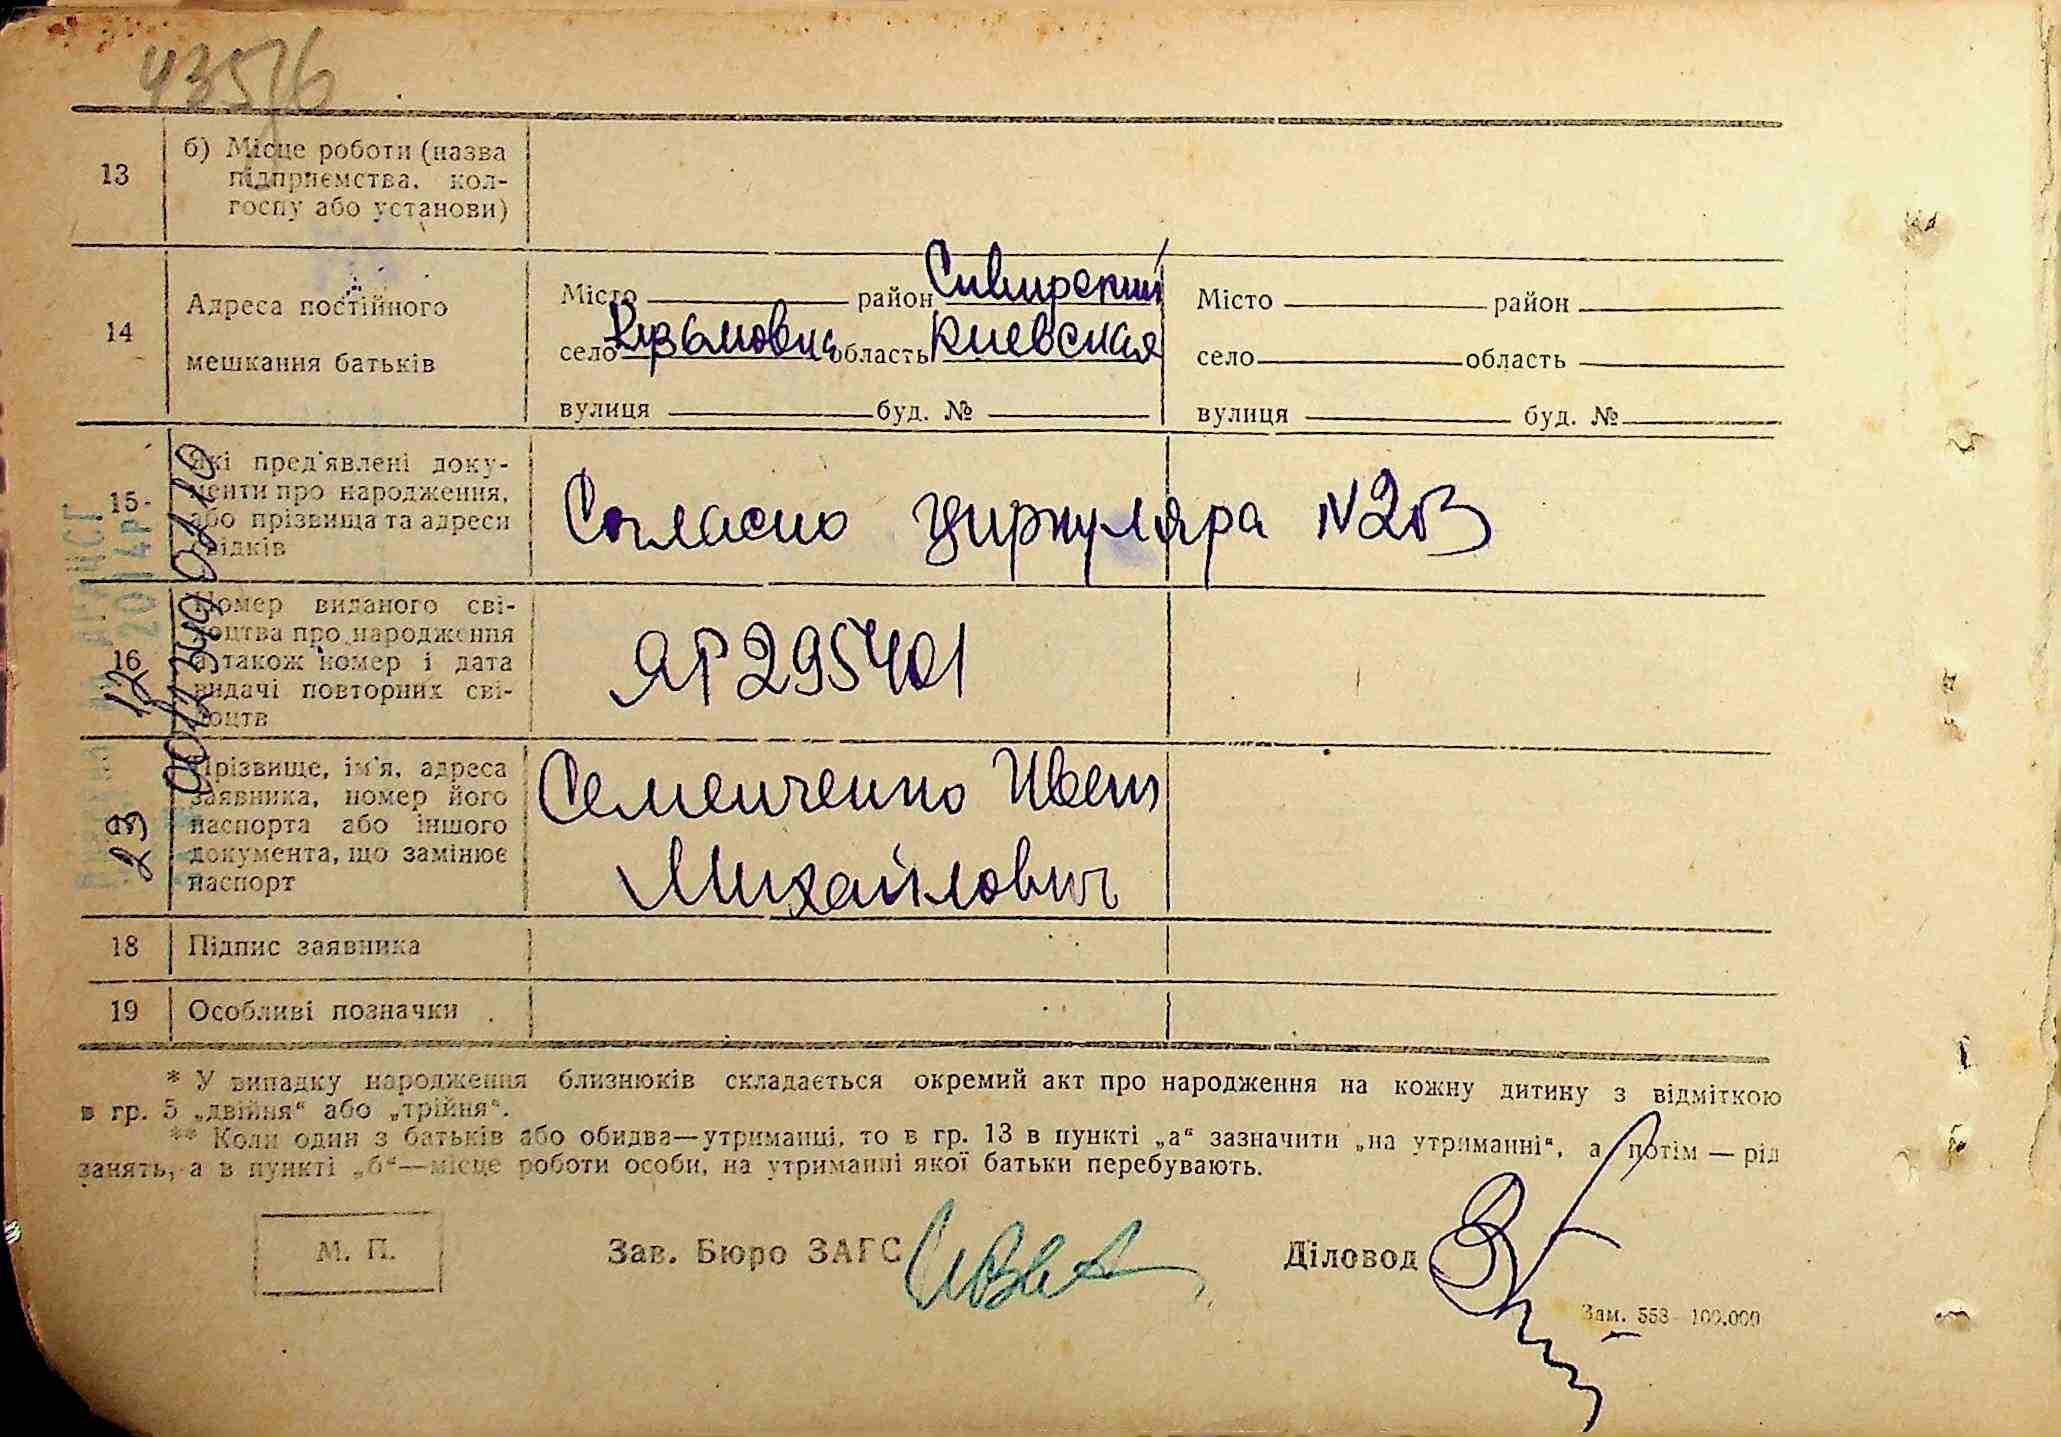 435/6
13
б) Місце роботи (назва
підприємства, кол-
госпу або установи)
14
Адреса постійного
мешкання батьків
Місто район Сивирский
село Кузьмовка область Киевская
вулиця буд. №
Місто район
село область
вулиця буд. №
15
Які пред'явлені доку-
менти про народження,
або прізвища та адреси
свідків
Согласно Циркуляра N203
16
Номер виданого сві-
доцтва про народження
а також номер і дата
видачі повторних сві-
доцтв
ЯР295401
17
Прізвище, ім'я, адреса
заявника, номер його
паспорта або іншого
документа, що замінює
паспорт
Семенченко Иван
Михайлович
18
Підпис заявника
19
Особливі позначки
* У випадку народження близнюків складається окремий акт про народження на кожну дитину з відміткою
в гр. 5 „двійня“ або „трійня“.
** Коли один з батьків або обидва—утриманці, то в гр. 13 в пункті „а“ зазначити „на утриманні“, а потім — рід
занять, а в пункті „б“—місце роботи особи, на утриманні якої батьки перебувають.
М. П.
Зав. Бюро ЗАГС
Діловод
Зам. 553—100.000